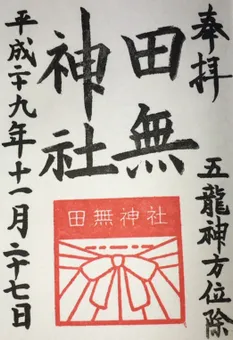 奉拝
五龍神方位除
田無
神社
田無神社
平成二十九年十一月二十七日